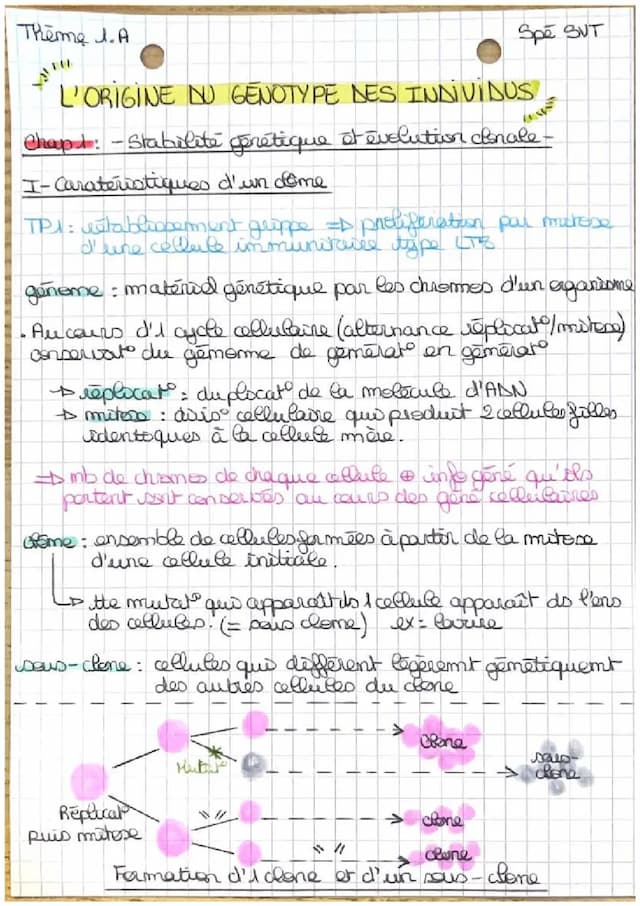 Thème 1.A
Spé SVT
L'ORIGINE DU GÉNOTYPE DES INDIVIDUS
Chap 1 : - Stabilité génétique et évolution clonale -
I - Caratéristiques d'un clône
TP1 : rétablissement grippe => prolifération par mitose
d'une cellule immunitaire type LT8
génome : matériel génétique par les chromos d'un organisme
. Au cours d'1 cycle cellulaire (alternance réplicat°/mitose)
conservat° du génome de générat° en générat°
→ réplicat° : duplicat° de la molécule d'ADN
→ mitose : divis° cellulaire qui produit 2 cellules filles
identiques à la cellule mère.
=> nb de chromos de chaque cellule ⊕ info géné qu'ils
portent sont conservés au cours des géné cellulaires
clône : ensemble de cellules formées à partir de la mitose
d'une cellule initiale.
↳ tte mutat° qui apparaît ds 1 cellule apparaît ds l'ens
des cellules. (= sous clone) ex =
sous-clone : cellules qui diffèrent légèremt génétiquemt
des autres cellules du clone
Mutat°
clone
sous-
clone
Réplicat°
puis mitose
" "
clone
" "
clone
Formation d'1 clone et d'un sous-clone